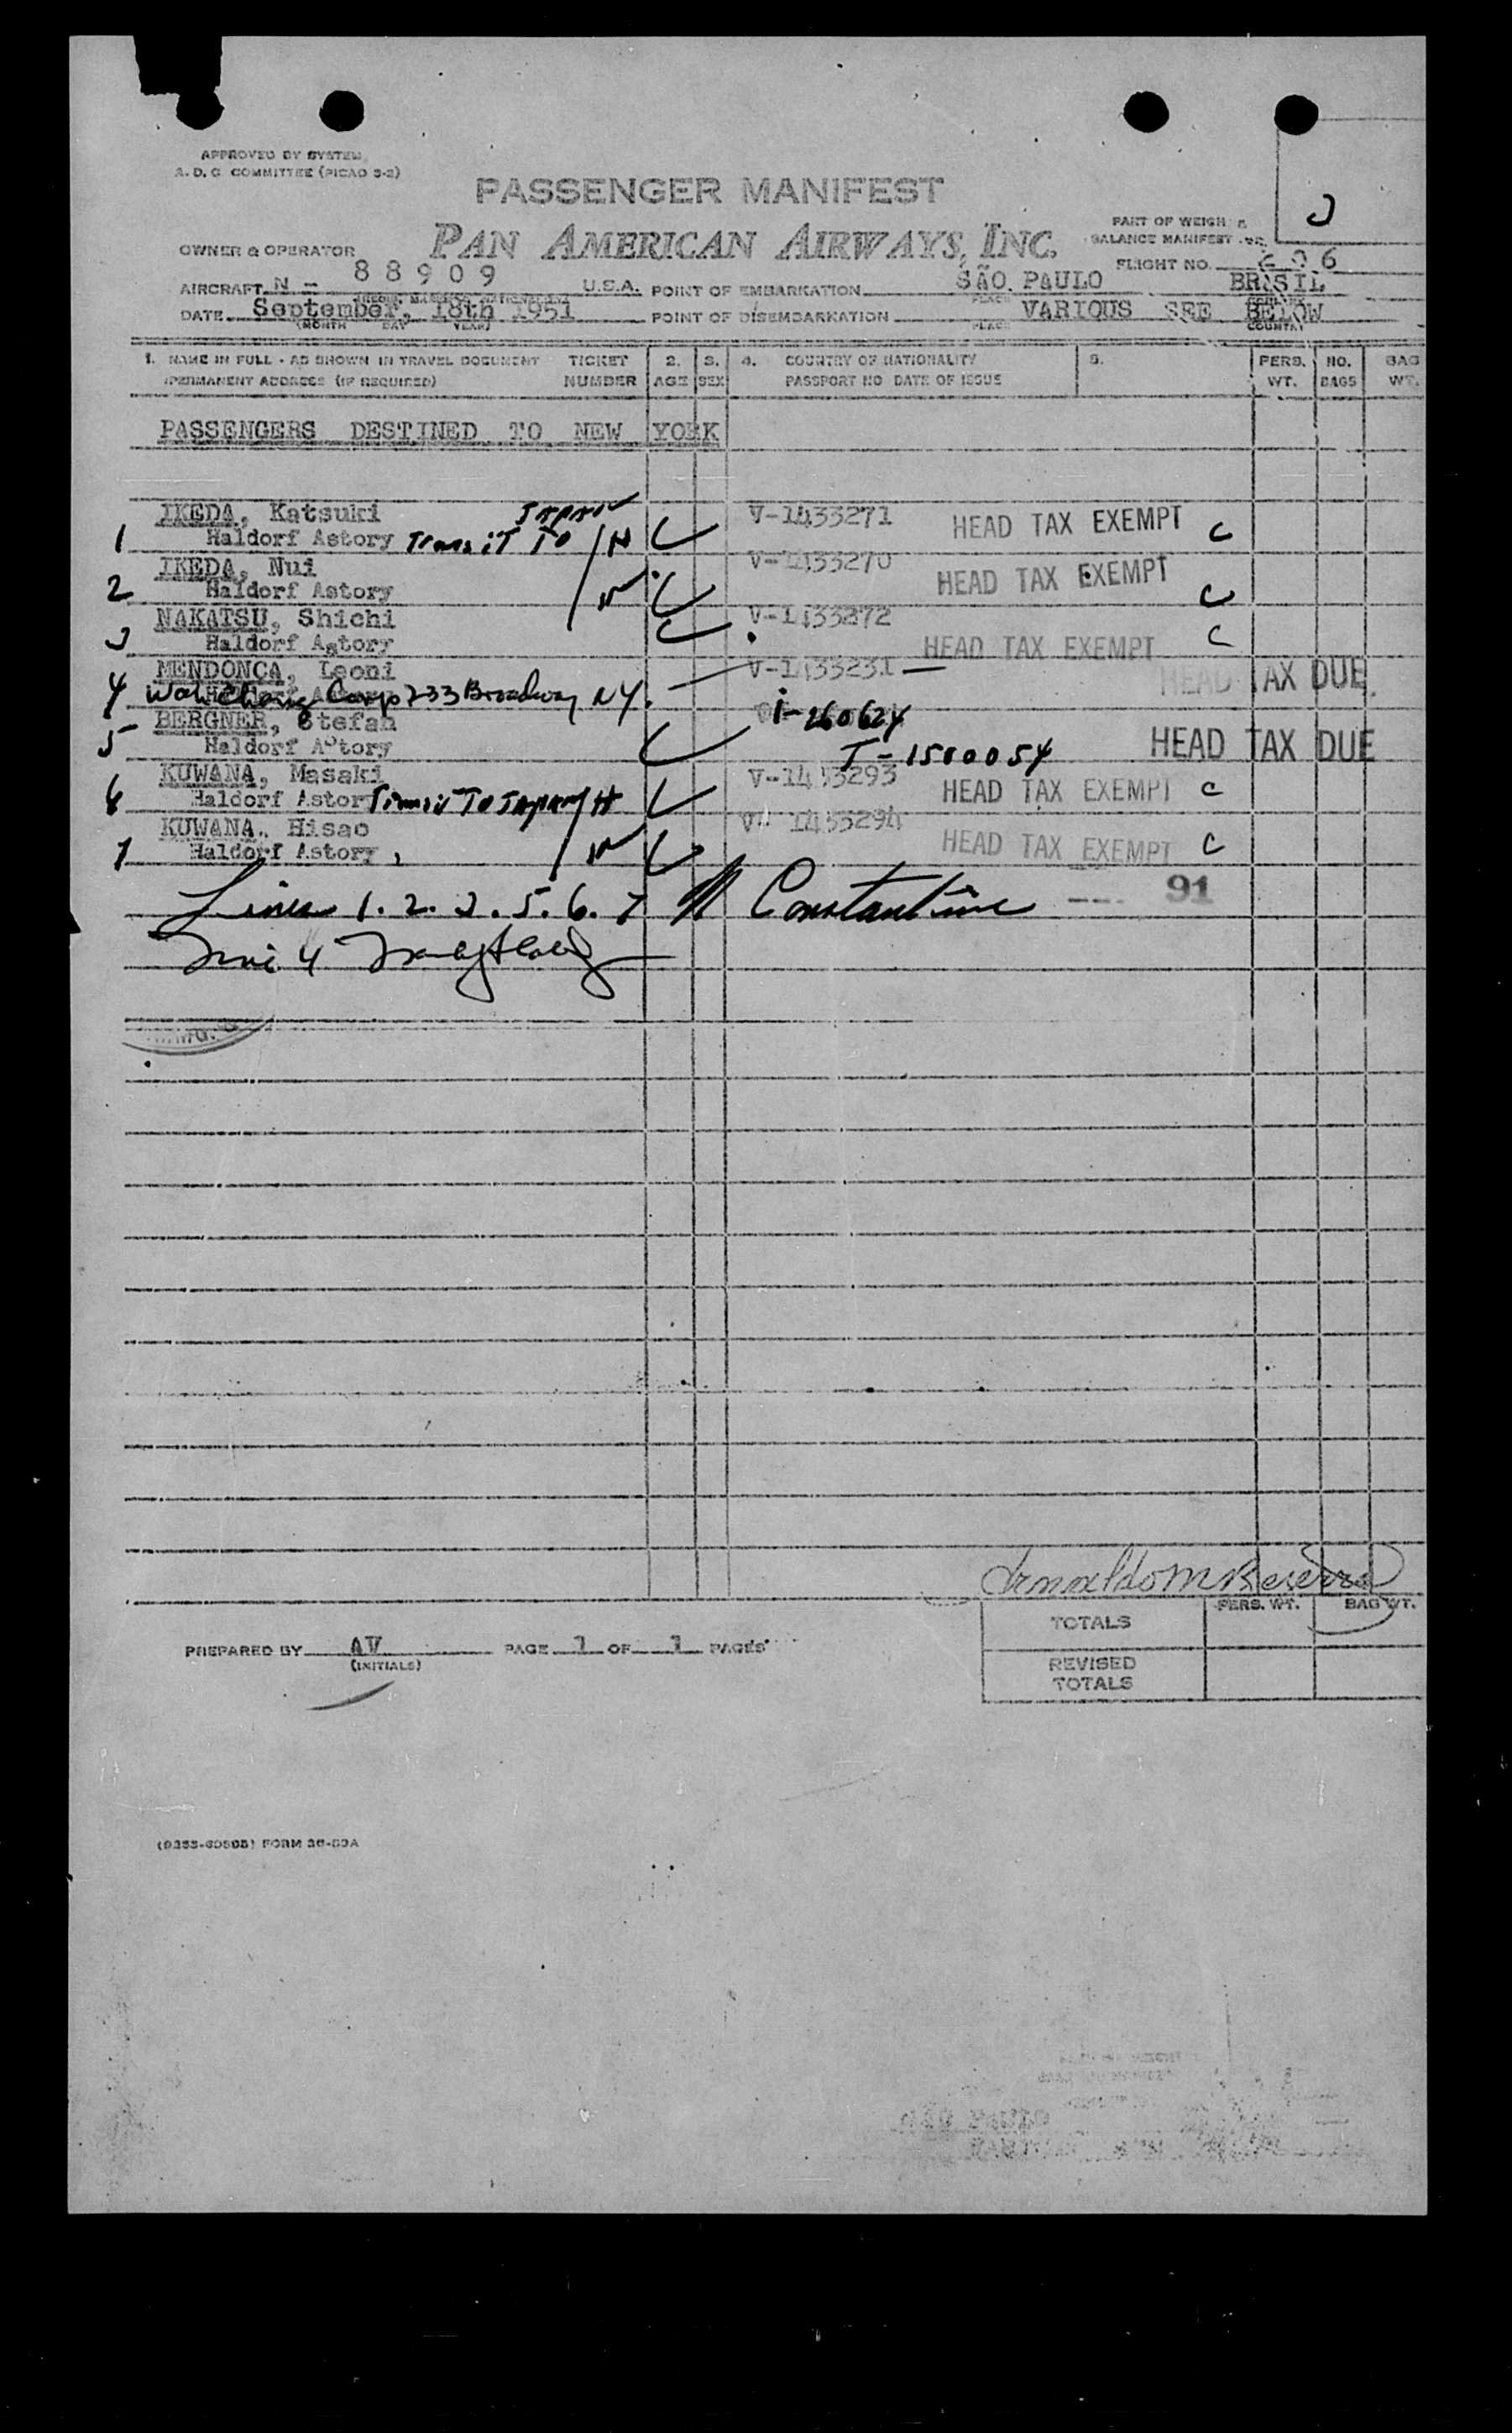 APPROVED BY SYSTEM
A. D. C COMMITTEE (PICAO 3-2)
PASSENGER MANIFEST
PAN AMERICAN AIRWAYS, INC.
PART OF WEIGH &
BALANCE MANIFEST
OWNER & OPERATOR
FLIGHT NO. 206
AIRCRAFT N - 88909 U.S.A. POINT OF EMBARKATION SÃO PAULO BRASIL
DATE September, 18th 1951 POINT OF DISEMBARKATION VARIOUS SEE BELOW
(MONTH DAY YEAR) PLACE COUNTRY
1. NAME IN FULL - AS SHOWN IN TRAVEL DOCUMENT TICKET 2. 3. 4. COUNTRY OF NATIONALITY 5. PERS. NO. BAG
(PERMANENT ADDRESS (IF REQUIRED) NUMBER AGE SEX PASSPORT NO DATE OF ISSUE WT. BAGS WT.
PASSENGERS DESTINED TO NEW YORK
IKEDA, Katsuki Japan V-1433271 HEAD TAX EXEMPT C
1 Haldorf Astory Transit To
IKEDA, Nui V-1433270 HEAD TAX EXEMPT C
2 Haldorf Astory
NAKATSU, Shichi V-1433272
3 Haldorf Astory HEAD TAX EXEMPT C
MENDONCA, Leoni V-1433231 HEAD TAX DUE
4 Wah Chang Corp 233 Broadway NY.
BERGNER, Stefan I-260624
5 Haldorf Astory I-1500054 HEAD TAX DUE
KUWANA, Masaki V-1433293 HEAD TAX EXEMPT C
6 Haldorf Astory Transit To Japan
KUWANA, Hisao V-1433294
7 Haldorf Astory HEAD TAX EXEMPT C
Lines 1. 2. 3. 5. 6. 7 Constantine --- 91
Line 4
PREPARED BY AV PAGE 1 OF 1 PAGES
(INITIALS)
PERS. WT. BAG WT.
TOTALS
REVISED
TOTALS